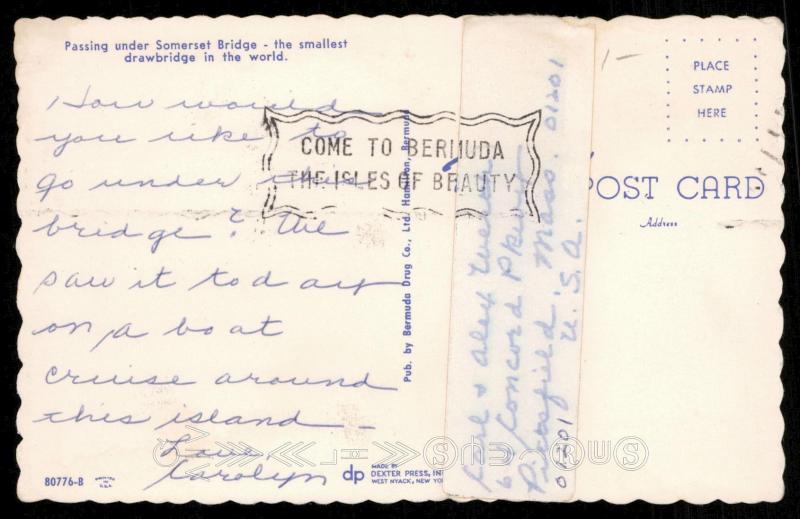 Passing under Somerset Bridge - the smallest
drawbridge in the world.
How would
you like to
go under this
bridge? We
saw it today
on a boat
cruise around
this island -
Love,
Carolyn
80776-B
COME TO BERMUDA
THE ISLES OF BEAUTY
Pub. by Bermuda Drug Co., Ltd. Hamilton, Bermuda
dp
MADE BY
DEXTER PRESS, INC
WEST NYACK, NEW YORK
& Alex
6 Concord Pkwy
Pittsfield Mass. 01201
U.S.A.
01201
PLACE
STAMP
HERE
POST CARD
Address